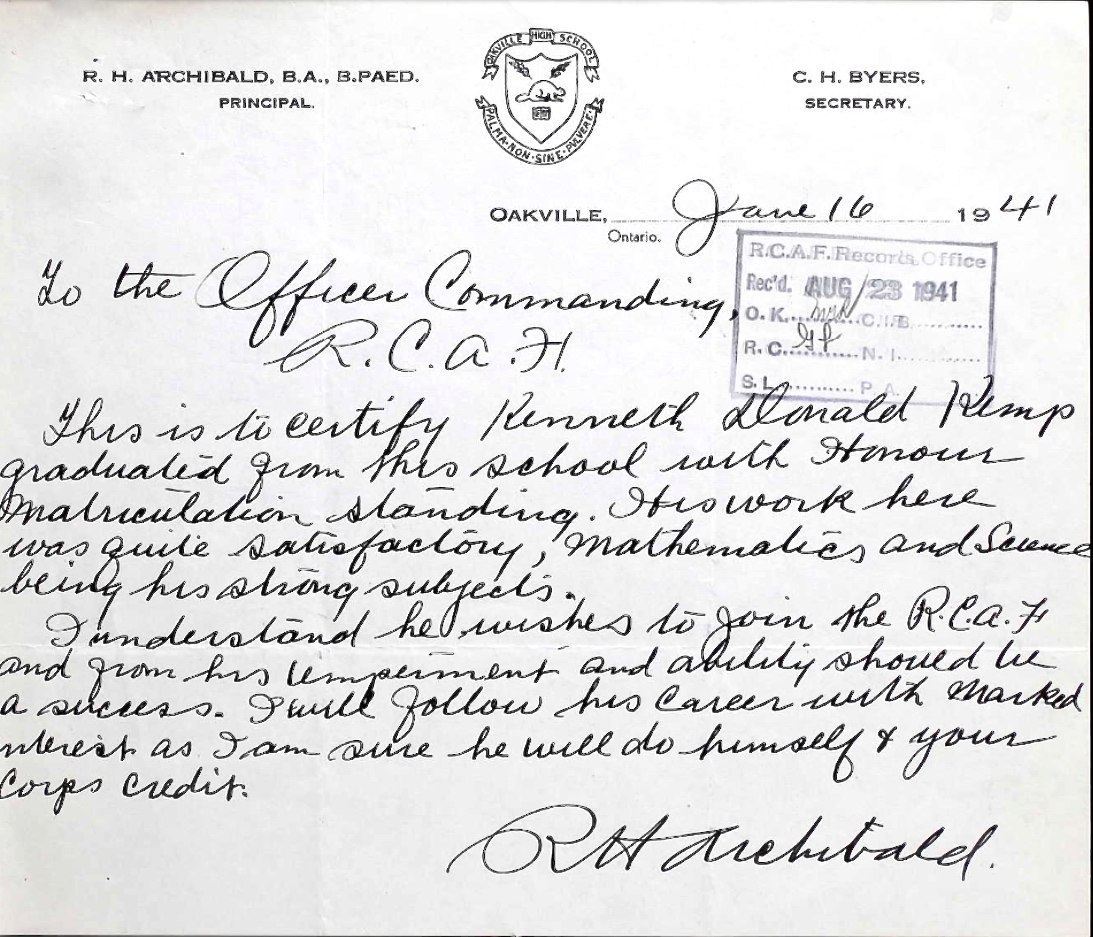 R. H. ARCHIBALD, B.A., B.PAED.
PRINCIPAL.
OAKVILLE HIGH SCHOOL
PALMA·NON·SINE·PULVERE
C. H. BYERS,
SECRETARY.
OAKVILLE, June 16 1941
Ontario.
R.C.A.F. Records Office
Rec'd. AUG 23 1941
O.K. C.I.B.
R.C. N.I.
S.L. P.A.
To the Officer Commanding,
R.C.A.F.
This is to certify Kenneth Donald Kemp
graduated from this school with Honour
Matriculation standing. His work here
was quite satisfactory, Mathematics and Science
being his strong subjects.
I understand he wishes to join the R.C.A.F
and from his temperment and ability should be
a success. I will follow his career with marked
nterest as I am sure he will do himself & your
Corps credit.
R H Archibald.